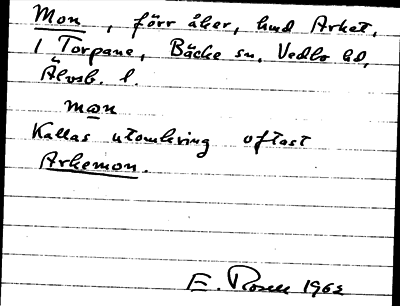 Mon, förr åker, hmd Arket,
1 Torpane, Bäcke sn, Vedbo hd,
Älvsb. l.
mon
Kallas utomkring oftast
Arkemon.
E. Rosell 1962